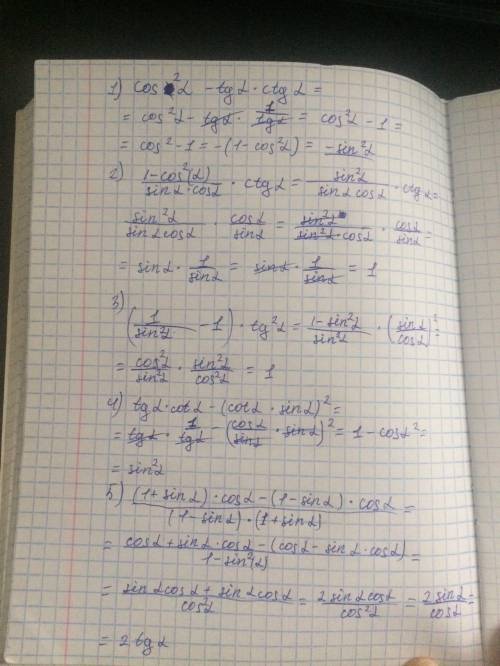 1) cos²α - tgα · ctgα =
= cos²α - tgα · 1/tgα = cos²α - 1 =
= cos² - 1 = -(1 - cos²α) = -sin²α
2) (1-cos²(α))/(sinα·cosα) · ctgα = sin²α/(sinα cosα) · ctgα =
sin²α/(sinα cosα) · cosα/sinα = sin²α/(sin²α·cosα) · cosα/sinα =
= sinα · 1/sinα = sinα · 1/sinα = 1
3)
(1/sin²α - 1) · tg²α = (1-sin²α)/sin²α · (sinα/cosα)² =
= cos²α/sin²α · sin²α/cos²α = 1
4) tgα·cotα - (cotα · sinα)² =
= tgα · 1/tgα - (cosα/sinα · sinα)² = 1 - cosα² =
= sin²α
5) ((1+sinα)·cosα - (1-sinα)·cosα)/((1-sinα)·(1+sinα)) =
= (cosα + sinα·cosα - (cosα - sinα·cosα))/(1-sin²(α)) =
= (sinαcosα + sinαcosα)/cos²α = 2sinαcosα/cos²α = 2sinα/cosα =
= 2tgα